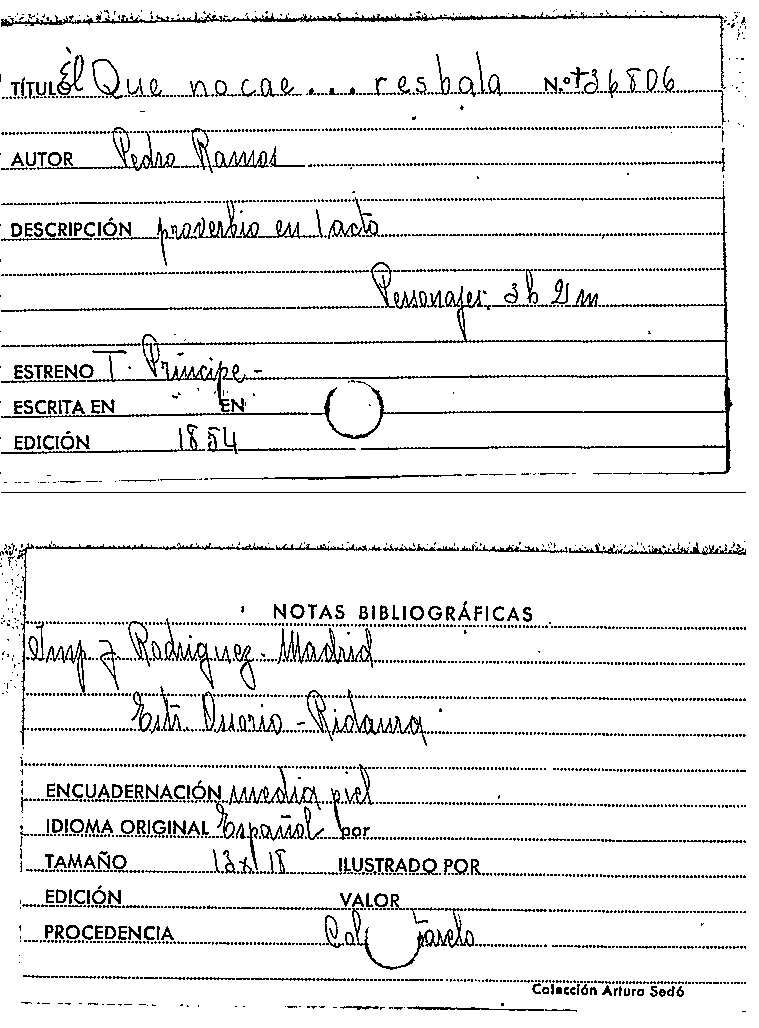 TÍTULO Él Que no cae... resbala N.º 36806
AUTOR Pedro Ramos
DESCRIPCIÓN proverbio en 1 acto
Personajes: 3 h 2 m
ESTRENO T. Príncipe -
ESCRITA EN EN
EDICIÓN 1854
NOTAS BIBLIOGRÁFICAS
Imp J Rodriguez. Madrid
Estr. Osorio - Ridaura
ENCUADERNACIÓN media piel
IDIOMA ORIGINAL Español por
TAMAÑO 13x18 ILUSTRADO POR
EDICIÓN VALOR
PROCEDENCIA Col
Colección Arturo Sedó